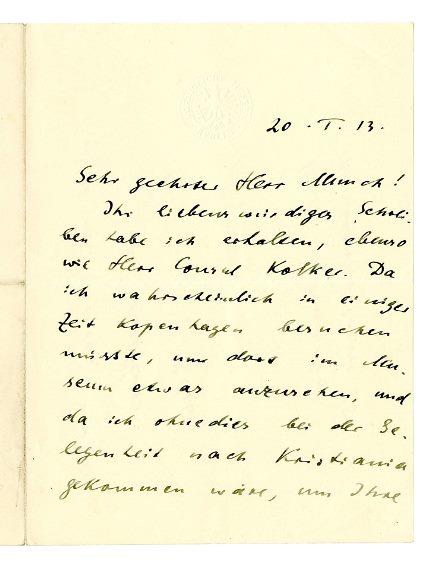 20. I. 13.
Sehr geehrter Herr Munch!
Ihr liebenswürdiges Schrei-
ben habe ich erhalten, ebenso
wie Herr Consul Kolker. Da
ich wahrscheinlich in einiger
Zeit Kopenhagen besuchen
müsste, um dort im Mu-
seum etwas anzusehen, und
da ich ohnedies bei der Ge-
legenheit nach Kristiania
gekommen wäre, um Ihre